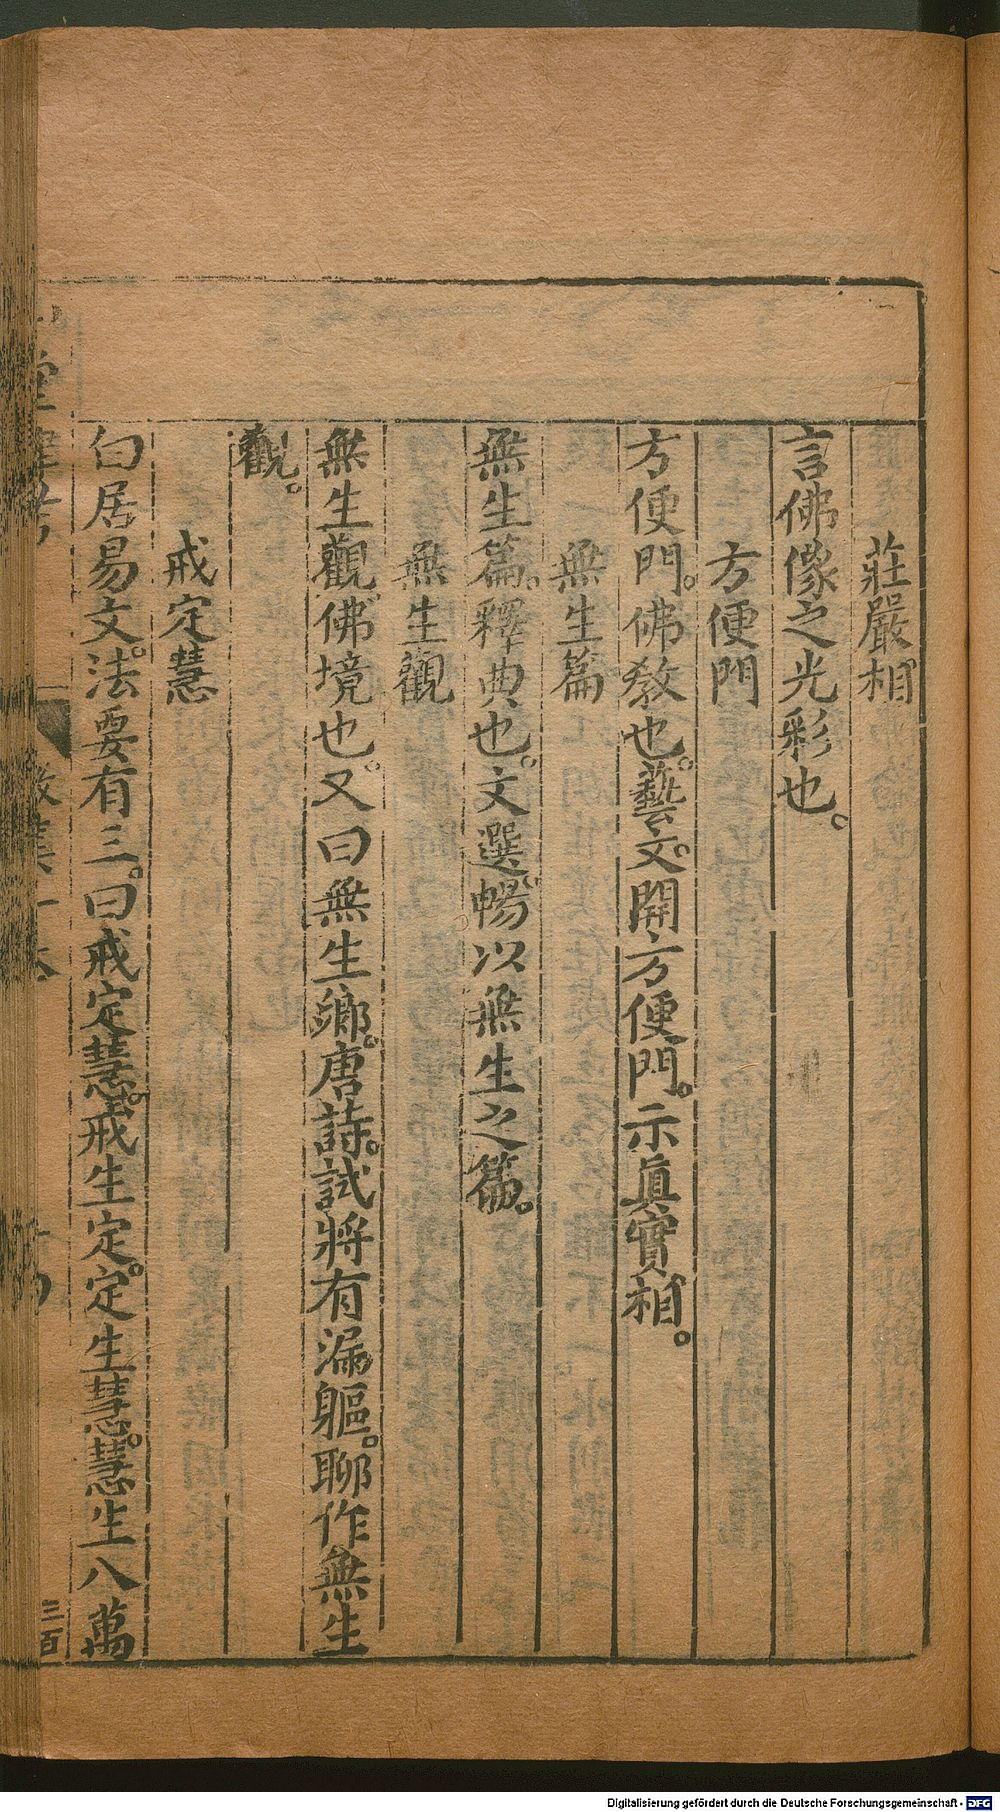 莊嚴相
言佛像之光彩也。
方便門
方便門。佛教也。藝文。開方便門。示眞實相。
無生篇
無生篇。釋典也。文選。暢以無生之篇。
無生觀
無生觀。佛境也。又曰無生鄉。唐詩。試將有漏軀。聊作無生
觀。
戒定慧
白居易文。法要有三。曰戒定慧。戒生定。定生慧。慧生八萬
三百
Digitalisierung gefördert durch die Deutsche Forschungsgemeinschaft - DFG